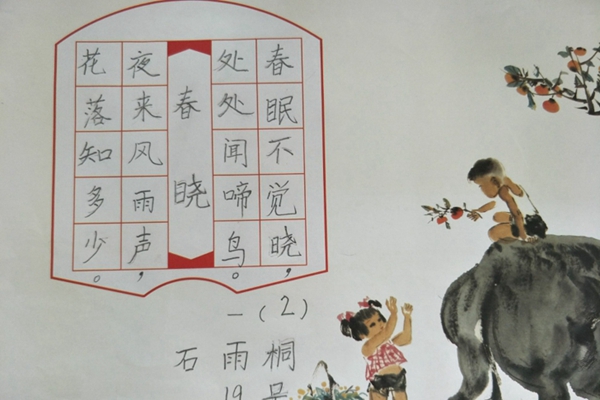 春眠不觉晓，
处处闻啼鸟。
春晓
夜来风雨声，
花落知多少。
一（2）
石雨桐
19号